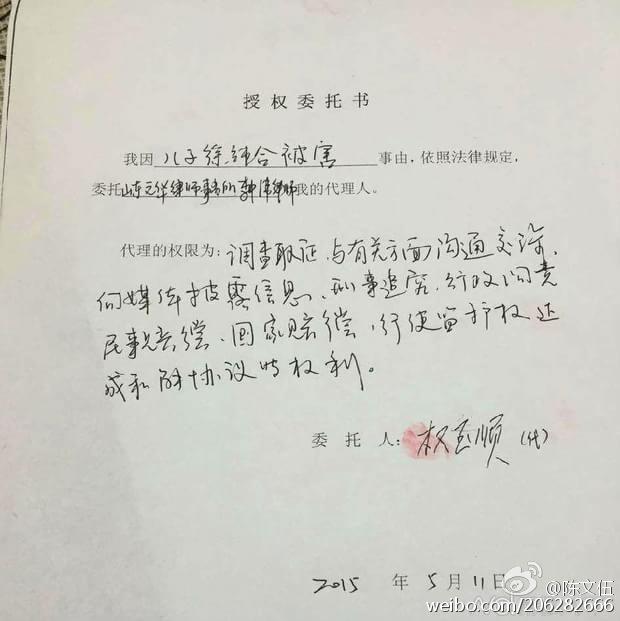 授权委托书
我因 儿子徐纯合被害 事由，依照法律规定，
委托山东 律师事务所 律师我的代理人。
代理的权限为：调查取证、与有关方面沟通交涉、
向媒体披露信息、刑事追究、行政问责
民事赔偿、国家赔偿、行使监护权达
成和解协议时权利。
委托人：权玉顺（代）
2015年5月11日
@陈文伍
weibo.com/206282666